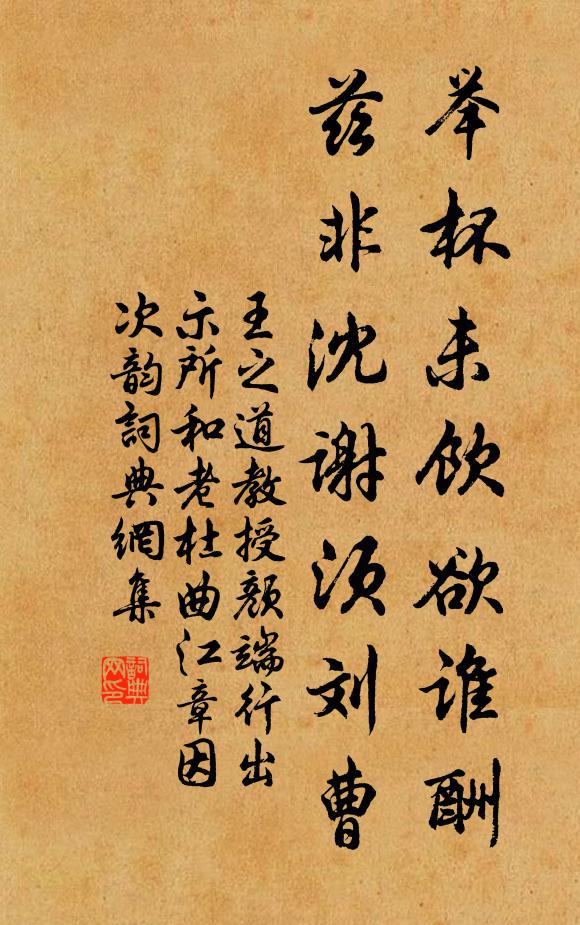 举杯未饮欲谁酬
兹非沈谢须刘曹
王之道教授颜端行出
示所和老杜曲江章因
次韵詞典網集
詞典网印